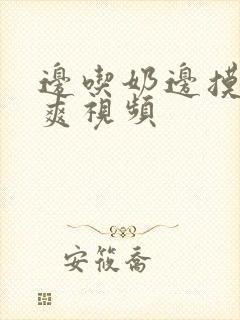 邊喫奶邊摸
爽視頻
安筱喬